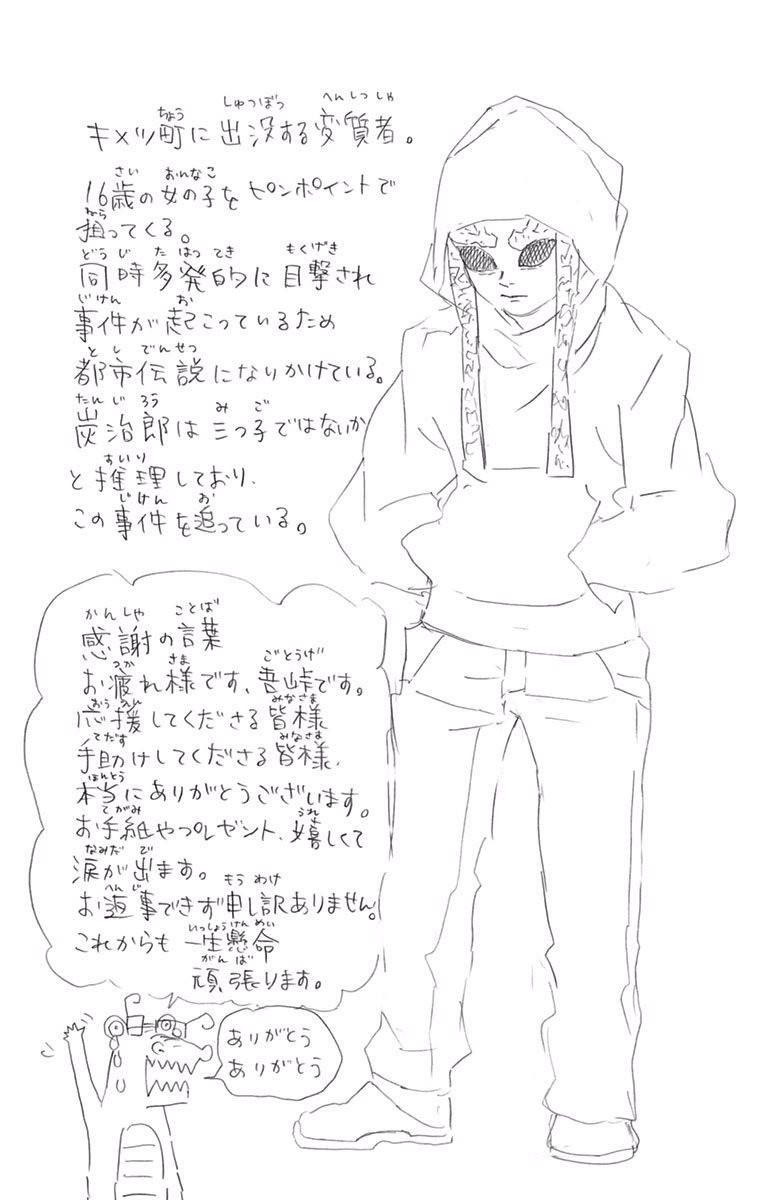 キメツ町に出没する変質者。
16歳の女の子をピンポイントで
狙ってくる。
同時多発的に目撃され
事件が起こっているため
都市伝説になりかけている。
炭治郎は三つ子ではないか
と推理しており、
この事件を追っている。
感謝の言葉
お疲れ様です、吾峠です。
応援してくださる皆様
手助けしてくださる皆様、
本当にありがとうございます。
お手紙やプレゼント、嬉しくて
涙が出ます。
お返事できず申し訳ありません。
これからも一生懸命
頑張ります。
ありがとう
ありがとう